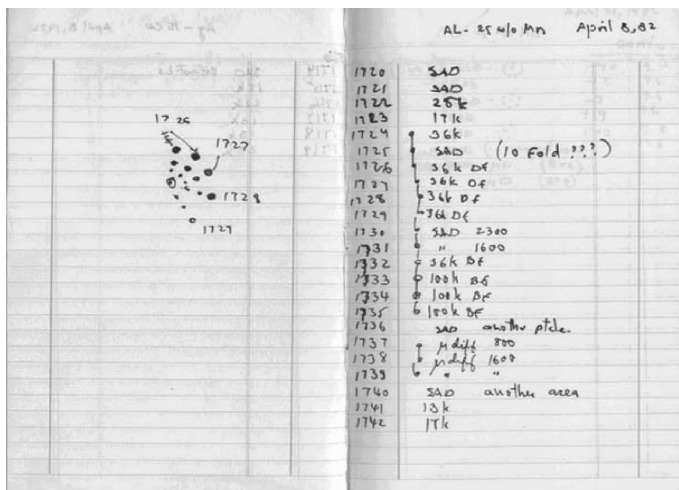 1726
1727
1728
1729
AL-25 w/o Mn April 8, 82
1720 SAD
1721 SAD
1722 25k
1723 17k
1724 36k
1725 SAD (10 Fold ???)
1726 36k DF
1727 36k DF
1728 36k DF
1729 36k DF
1730 SAD 2300
1731 " 1600
1732 36k BF
1733 100k BF
1734 100k DF
1735 100k DF
1736 SAD another ptcle.
1737 μ diff 800
1738 μ diff 1600
1739 " "
1740 SAD another area
1741 13k
1742 17k